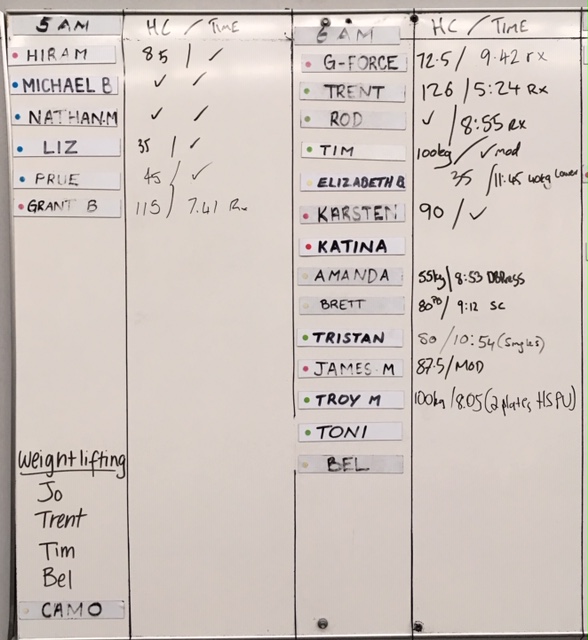 5 AM HC / TIME
HIRAM 85 / ✓
MICHAEL B ✓ ✓
NATHAN.M ✓ ✓
LIZ 35 / ✓
PRUE 45 / ✓
GRANT B 115 / 7.41 Rx
Weightlifting
Jo
Trent
Tim
Bel
CAMO
6 AM HC / TIME
G-FORCE 72.5 / 9.42 rx
TRENT 126 / 5:24 Rx
ROD ✓ / 8:55 Rx
TIM 100kg / ✓ mod
ELIZABETH B 35 / 11.45 40kg Lower
KARSTEN 90 / ✓
KATINA
AMANDA 55kg / 8:53 DBPress
BRETT 80 / 9:12 SC
TRISTAN 80 / 10:54 (Singles)
JAMES M 87.5 / MOD
TROY M 100kg / 8.05 (2 plates HSPU)
TONI
BEL